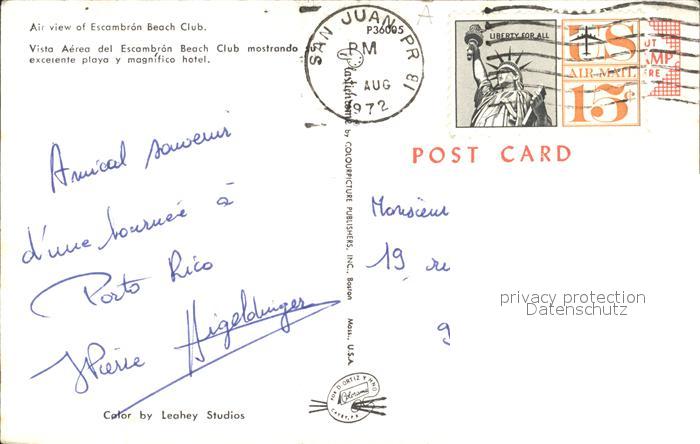 Air view of Escambrón Beach Club.
Vista Aérea del Escambrón Beach Club mostrando su
excelente playa y magnífico hotel.
SAN JUAN, PR
PM
AUG
1972
P36005
Plastichrome by COLOURPICTURE PUBLISHERS, INC., Boston Mass., U.S.A.
LIBERTY FOR ALL
US
AIR MAIL
15¢
POST CARD
Amical souvenir
d'une tournée à
Porto Rico
Monsieur
19
9
privacy protection
Datenschutz
Color by Leahey Studios